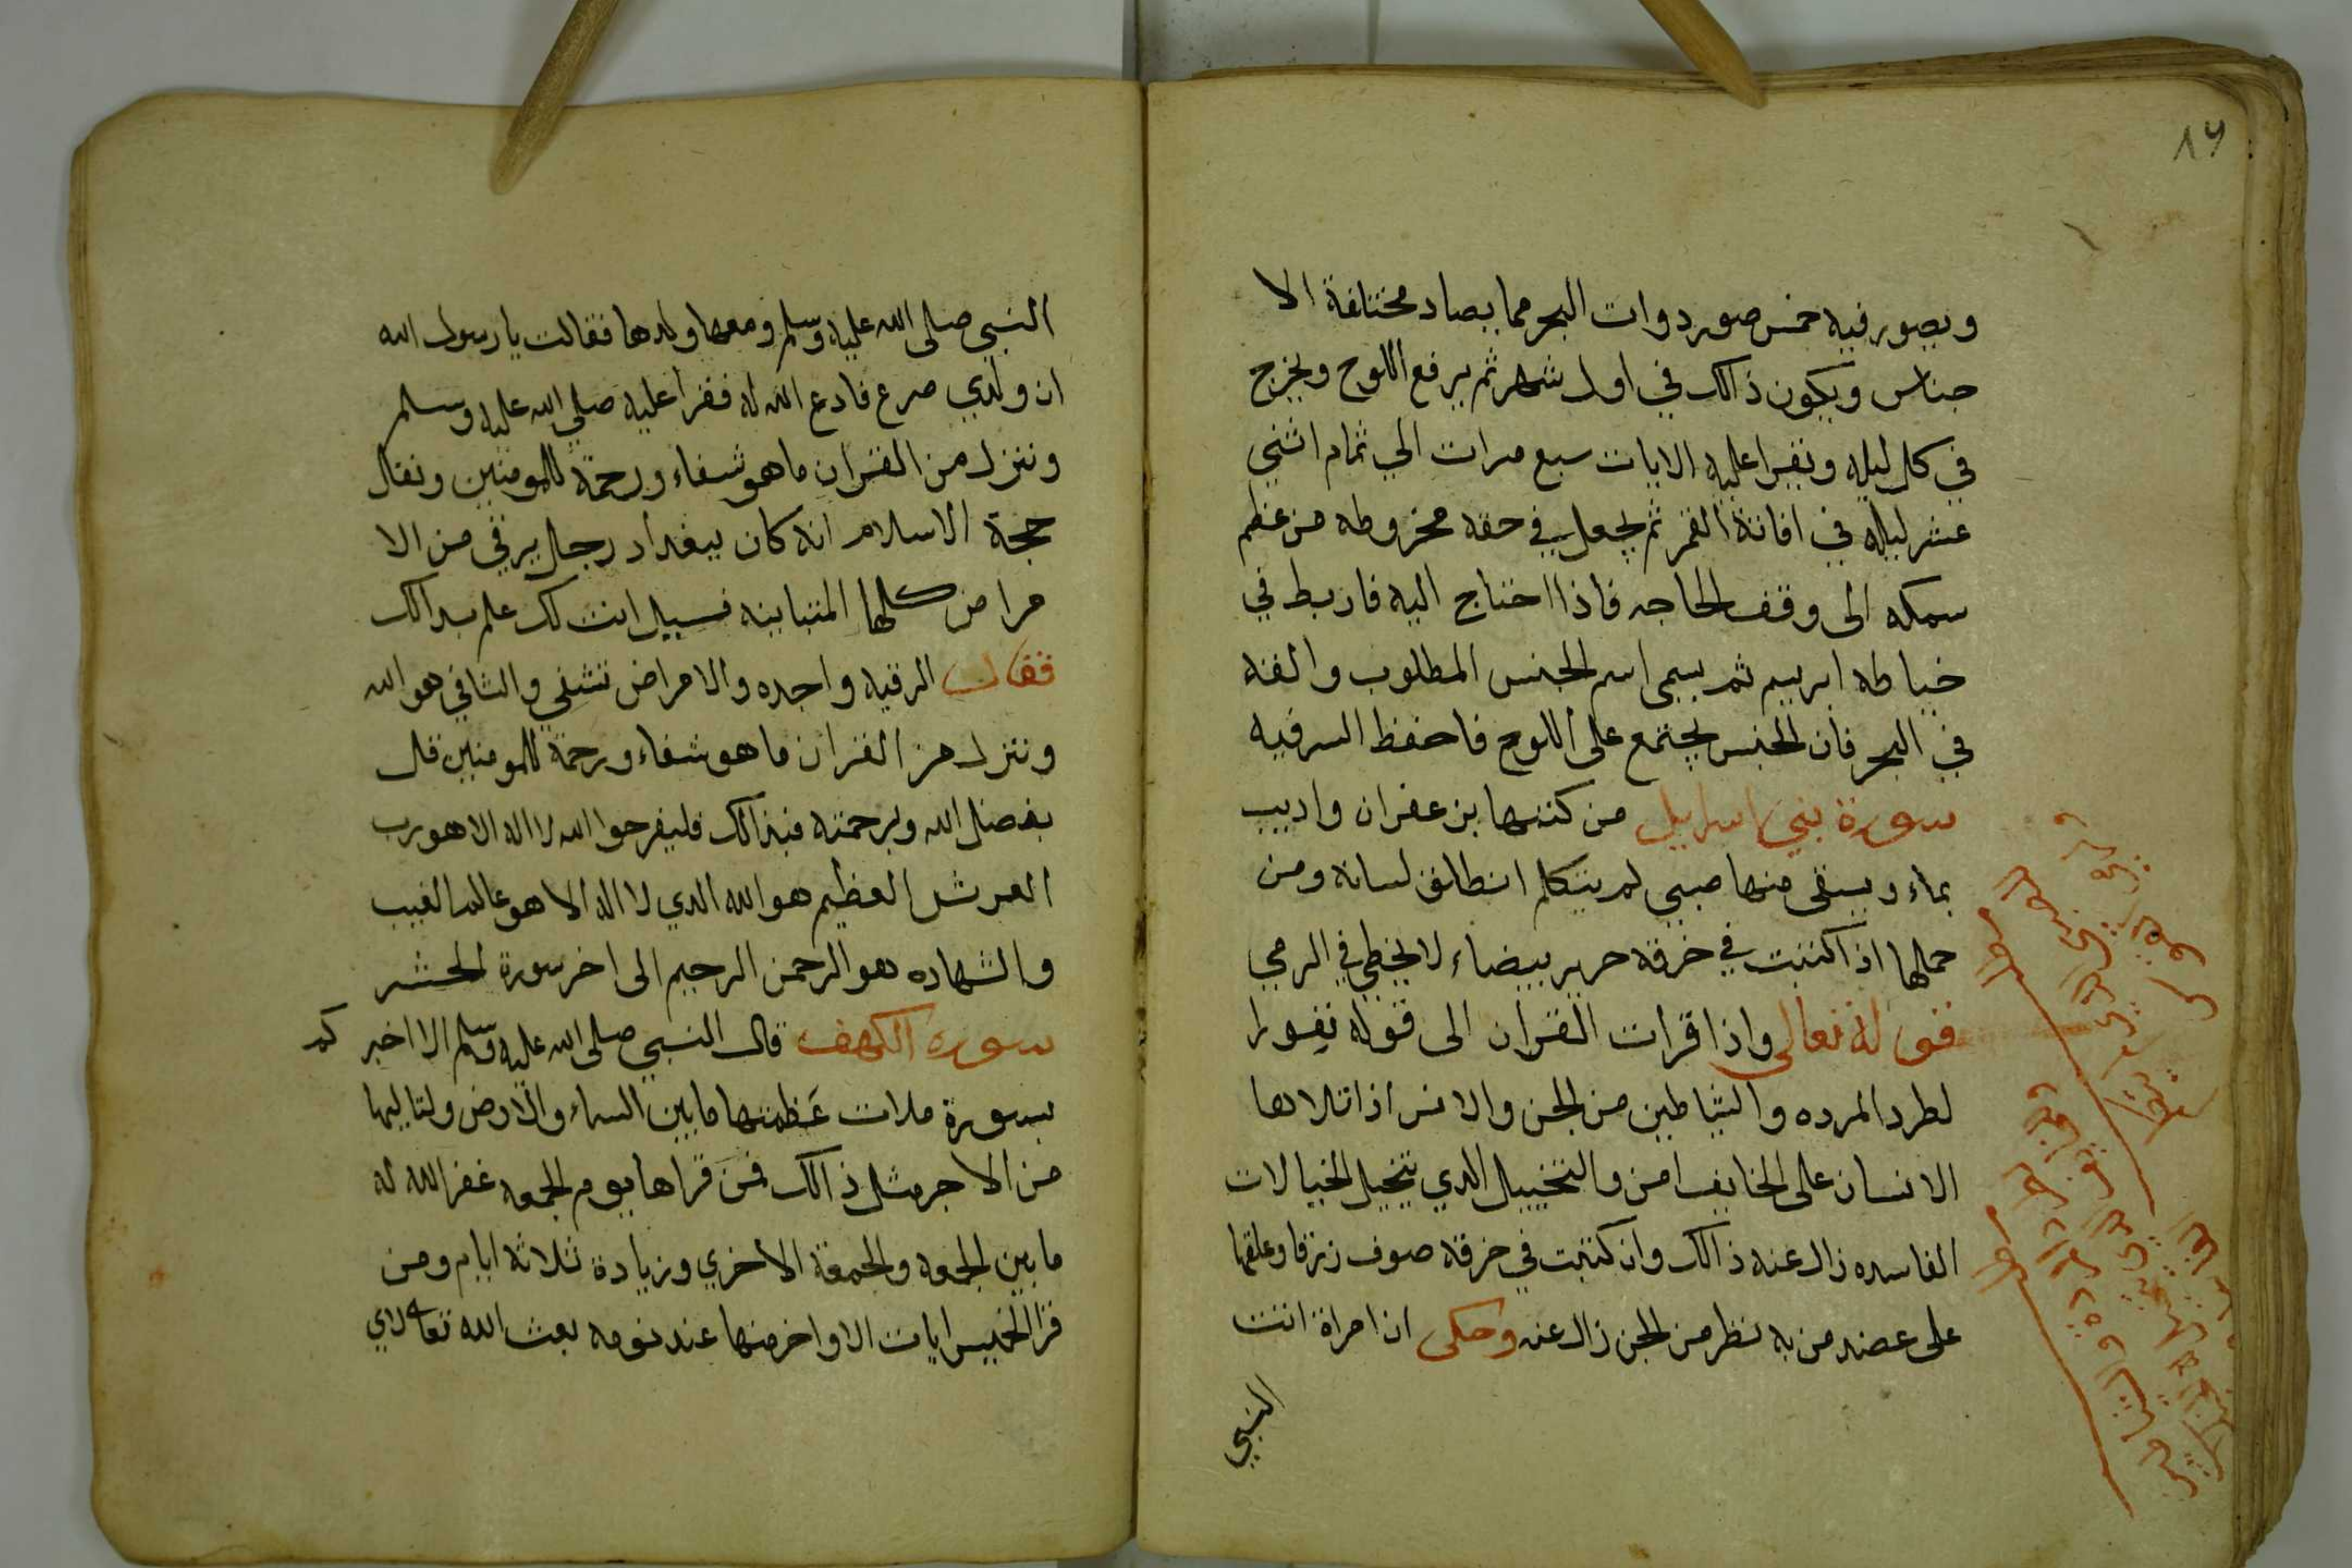 ٨٩
ويصور فيه خمس صور دوات البحر مما يصاد مختلفة الا
جناس ويكون ذالك في اول شهر ثم يرفع اللوح ويخرج
في كل ليله ويقرا عليه الايات سبع مرات الي تمام اثني
عشر ليله في افانة القمر ثم يجعل في حقه مخروطه من عظم
سمكه الى وقف الحاجه فاذا احتاج اليه فاربط في
خياطه ابريسم ثم يسمى اسم الجنس المطلوب والقه
في البحر فان الجنس يجتمع على اللوح فاحفظ السر فيه
سورة بني اسرايل من كتبها بزعفران واديب
بماء ويسقى منها صبي لم يتكلم انطلق لسانه ومن
حملها اذا كتبت في خرقه حرير بيضاء لا يخطي في الرمي
قوله تعالى واذا قرات القران الى قوله نفورا
لطرد المرده والشياطين من الجن والانس اذا تلاها
الانسان على الخايف امن والتخييل الدي يتخيل الخيالات
الفاسده زال عنه ذالك وان كتبت في خرقه صوف زرقا وعلقها
على عضد من به نظر من الجن زال عنه وحكى ان امراة اتت
النبي
النبي صلى الله عليه وسلم ومعها ولدها فقالت يا رسول الله
ان ولدي صرع فادع الله له فقرا عليه صلي الله عليه وسلم
وننزل من القران ما هو شفاء ورحمة للمومنين ونقال
حجة الاسلام انه كان ببغداد رجل يرقي من الا
مراض كلها المتباينه فسيل انت لك علم بدالك
فقال الرقيه واحده والامراض تشفي والشافي هو الله
وننزل من القران ما هو شفاء ورحمة للمومنين قل
بفضل الله وبرحمته فبذالك فليفرحوا الله لا اله الا هو رب
العرش العظيم هو الله الدي لا اله الا هو عالم الغيب
والشهاده هو الرحمن الرحيم الى اخر سورة الحشر
سورة الكهف قال النبي صلى الله عليه وسلم الا اخبر كم
بسورة ملات عَظمتها ما بين السماء والارض ولتاليها
من الاجر مثل ذالك فمن قراها يوم الجمعه غفر الله له
ما بين الجمعه والجمعة الاخري وزيادة ثلاثة ايام ومن
قرا الخميس ايات الاواخر منها عند نومه بعث الله تعالى لاي